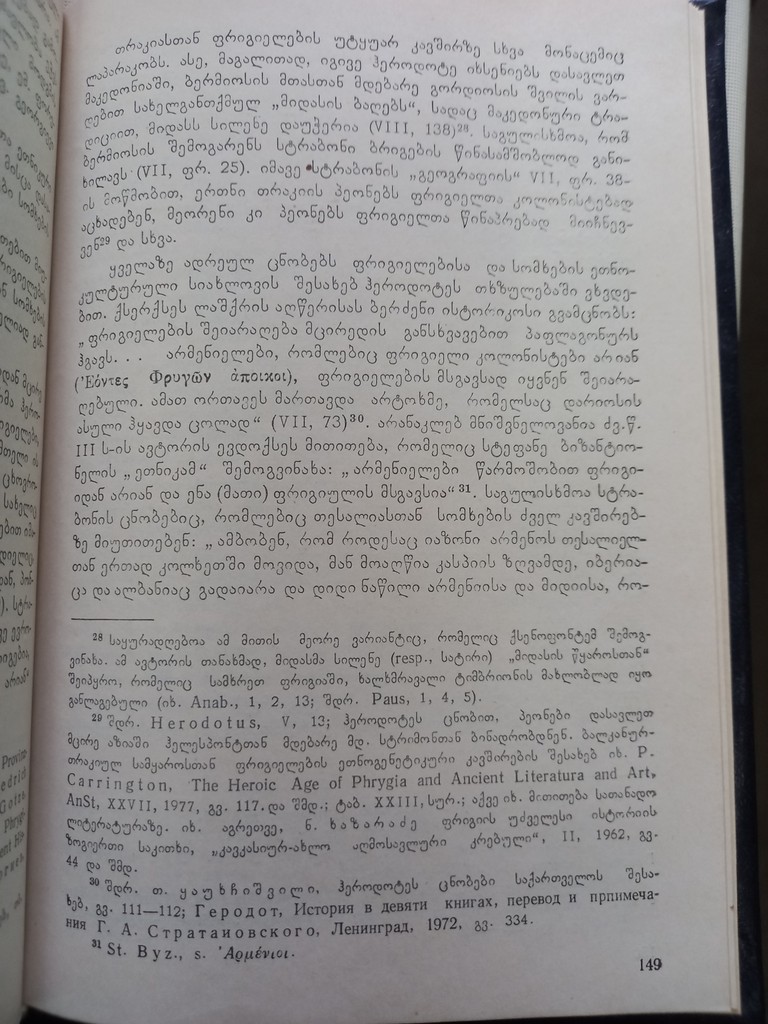 თრაკიასთან ფრიგიელების უტყუარ კავშირზე სხვა მონაცემიც
ლაპარაკობს. ასე, მაგალითად, იგივე ჰეროდოტე იხსენიებს დასავლეთ
მაკედონიაში, ბერმიოსის მთასთან მდებარე გორდიოსის შვილის ვარ-
დებით სახელგანთქმულ „მიდასის ბაღებს“, სადაც მაკედონური ტრა-
დიციით, მიდასს სილენე დაუჭერია (VIII, 138)²⁸. საგულისხმოა, რომ
ბერმიოსის შემოგარენს სტრაბონი ბრიგების წინასამშობლოდ განი-
ხილავს (VII, ფრ. 25). იმავე სტრაბონის „გეოგრაფიის“ VII, ფრ. 38-
ის მოწმობით, ერთნი თრაკიის პეონებს ფრიგიელთა კოლონისტებად
აცხადებენ, მეორენი კი პეონებს ფრიგიელთა წინაპრებად მიიჩნევ-
ვენ²⁹ და სხვა.
ყველაზე ადრეულ ცნობებს ფრიგიელებისა და სომხების ეთნო-
კულტურული სიახლოვის შესახებ ჰეროდოტეს თხზულებაში ვხვდე-
ბით. ქსერქსეს ლაშქრის აღწერისას ბერძენი ისტორიკოსი გვამცნობს:
„ფრიგიელების შეიარაღება მცირედის განსხვავებით პაფლაგონურს
ჰგავს... არმენიელები, რომლებიც ფრიგიელი კოლონისტები არიან
(Ἐόντες Φρυγῶν ἀποικοι), ფრიგიელების მსგავსად იყვნენ შეიარა-
ღებული. ამათ ორთავეს მართავდა არტოხმე, რომელსაც დარიოსის
ასული ჰყავდა ცოლად“ (VII, 73)³⁰. არანაკლებ მნიშვნელოვანია ძვ.წ.
III ს-ის ავტორის ევდოქსეს მითითება, რომელიც სტეფანე ბიზანტიო-
ნელის „ეთნიკამ“ შემოგვინახა: „არმენიელები წარმოშობით ფრიგი-
იდან არიან და ენა (მათი) ფრიგიულის მსგავსია“³¹. საგულისხმოა სტრა-
ბონის ცნობებიც, რომლებიც თესალიასთან სომხების ძველ კავშირებ-
ზე მიუთითებენ: „ამბობენ, რომ როდესაც იაზონი არმენოს თესალიელ-
თან ერთად კოლხეთში მოვიდა, მან მოაღწია კასპიის ზღვამდე, იბერია-
ცა და ალბანიაც გადაიარა და დიდი ნაწილი არმენიისა და მიდიისა, რო-
²⁸ საყურადღებოა ამ მითის მეორე ვარიანტიც, რომელიც ქსენოფონტემ შემოგ-
ვინახა. ამ ავტორის თანახმად, მიდასმა სილენე (resp., სატირი) „მიდასის წყაროსთან“
შეიპყრო, რომელიც სამხრეთ ფრიგიაში, ხალხმრავალი ტიმბრიონის მახლობლად იყო
განლაგებული (იხ. Anab., 1, 2, 13; შდრ. Paus, 1, 4, 5).
²⁹ შდრ. Herodotus, V, 13; ჰეროდოტეს ცნობით, პეონები დასავლეთ
მცირე აზიაში ჰელესპონტთან მდებარე მდ. სტრიმონთან ბინადრობდნენ. ბალკანურ-
თრაკიულ სამყაროსთან ფრიგიელების ეთნოგენეტიკური კავშირების შესახებ იხ. P.
Carrington, The Heroic Age of Phrygia and Ancient Literatura and Art,
AnSt, XXVII, 1977, გვ. 117. და შმდ.; ტაბ. XXIII, სურ.; აქვე იხ. მითითება სათანადო
ლიტერატურაზე. იხ. აგრეთვე, ნ. ხაზარაძე ფრიგიის უძველესი ისტორიის
ზოგიერთი საკითხი, „კავკასიურ-ახლო აღმოსავლური კრებული“, II, 1962, გვ.
44 და შმდ.
³⁰ შდრ. თ. ყაუხჩიშვილი, ჰეროდოტეს ცნობები საქართველოს შესა-
ხებ, გვ. 111—112; Геродот, История в девяти книгах, перевод и прпимеча-
ния Г. А. Стратановского, Ленинград, 1972, გვ. 334.
³¹ St. Byz., s. Ἀρμένιοι.
149